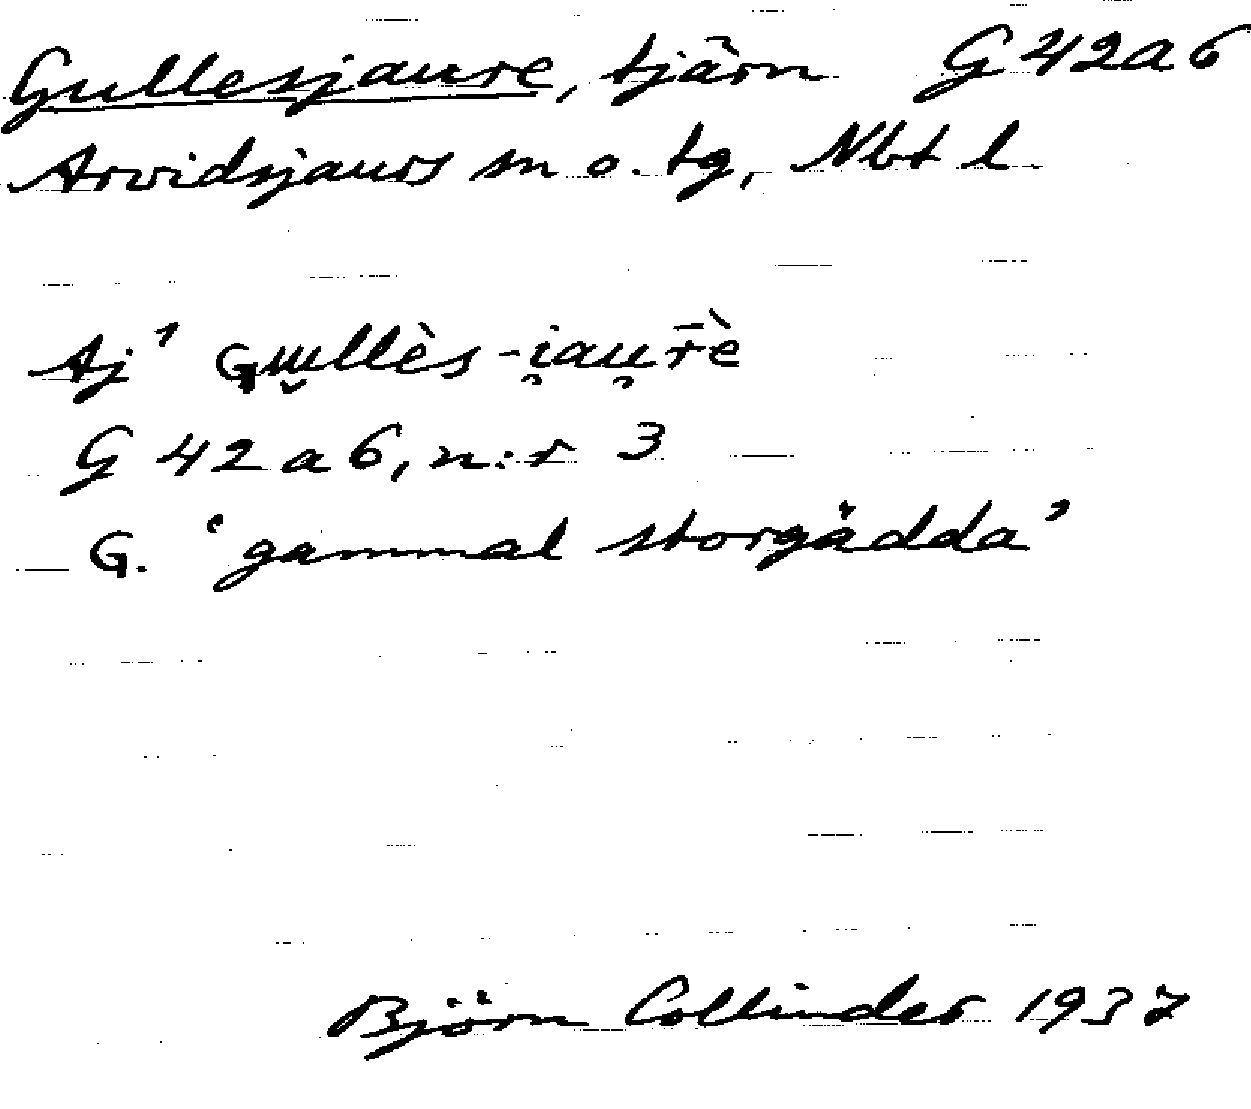 Gullesjaure, tjärn G 42a6
Arvidsjaurs sn o. tg, Nbt l
Aj¹ Gɯ̮llès-i̯au̯r̄è
G 42 a 6, n:r 3
G. ‘gammal storgädda’
Björn Collinder 1937